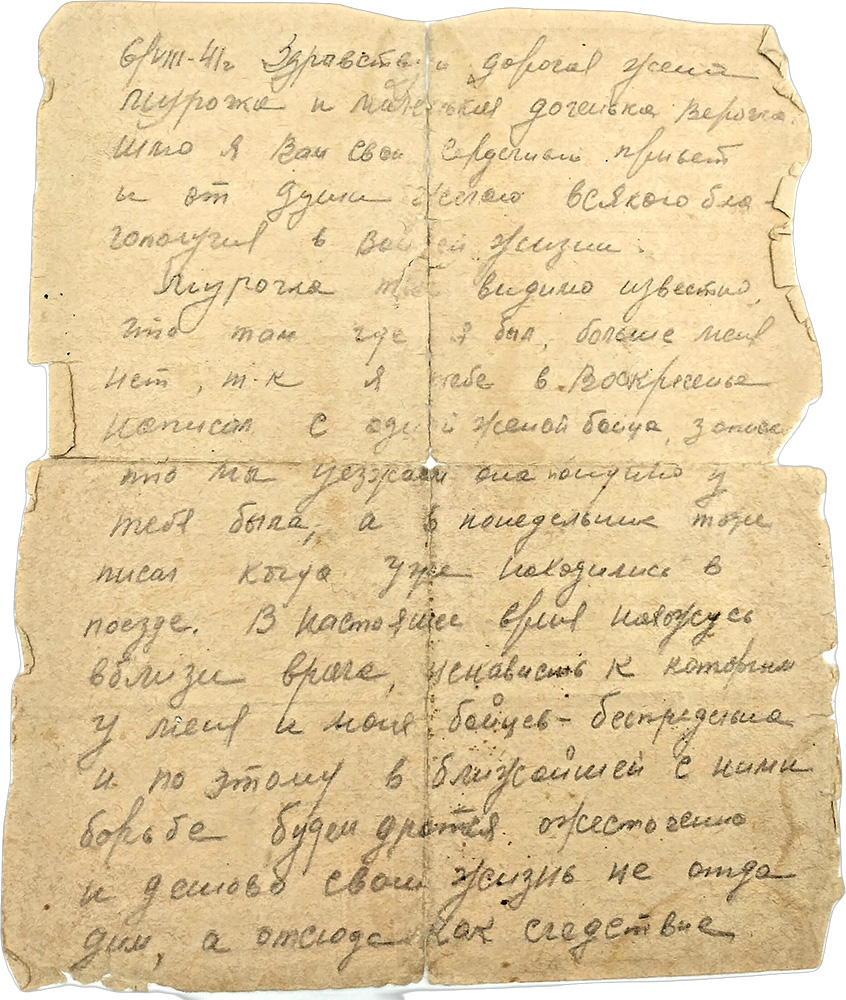 6/VIII-41г Здравствуй дорогая жена
Шурочка и маленькая доченька Верочка.
Шлю я Вам свой сердечный привет
и от души желаю всякого бла-
гополучия в Вашей жизни.
Шурочка тебе видимо известно,
что там где я был, больше меня
нет, т.к я тебе в Воскресенье
написал с одной женой бойца, записк
что мы уезжаем она видимо у
тебя была, а в понедельник тоже
писал когда уже находились в
поезде. В настоящее время нахожусь
вблизи врага, ненависть к которым
у меня и моих бойцев - беспредельна
и по этому в ближайшей с ними
борьбе будем дратся ожесточенно
и дешово свою жизнь не отда
дим, а отсюда как следствие